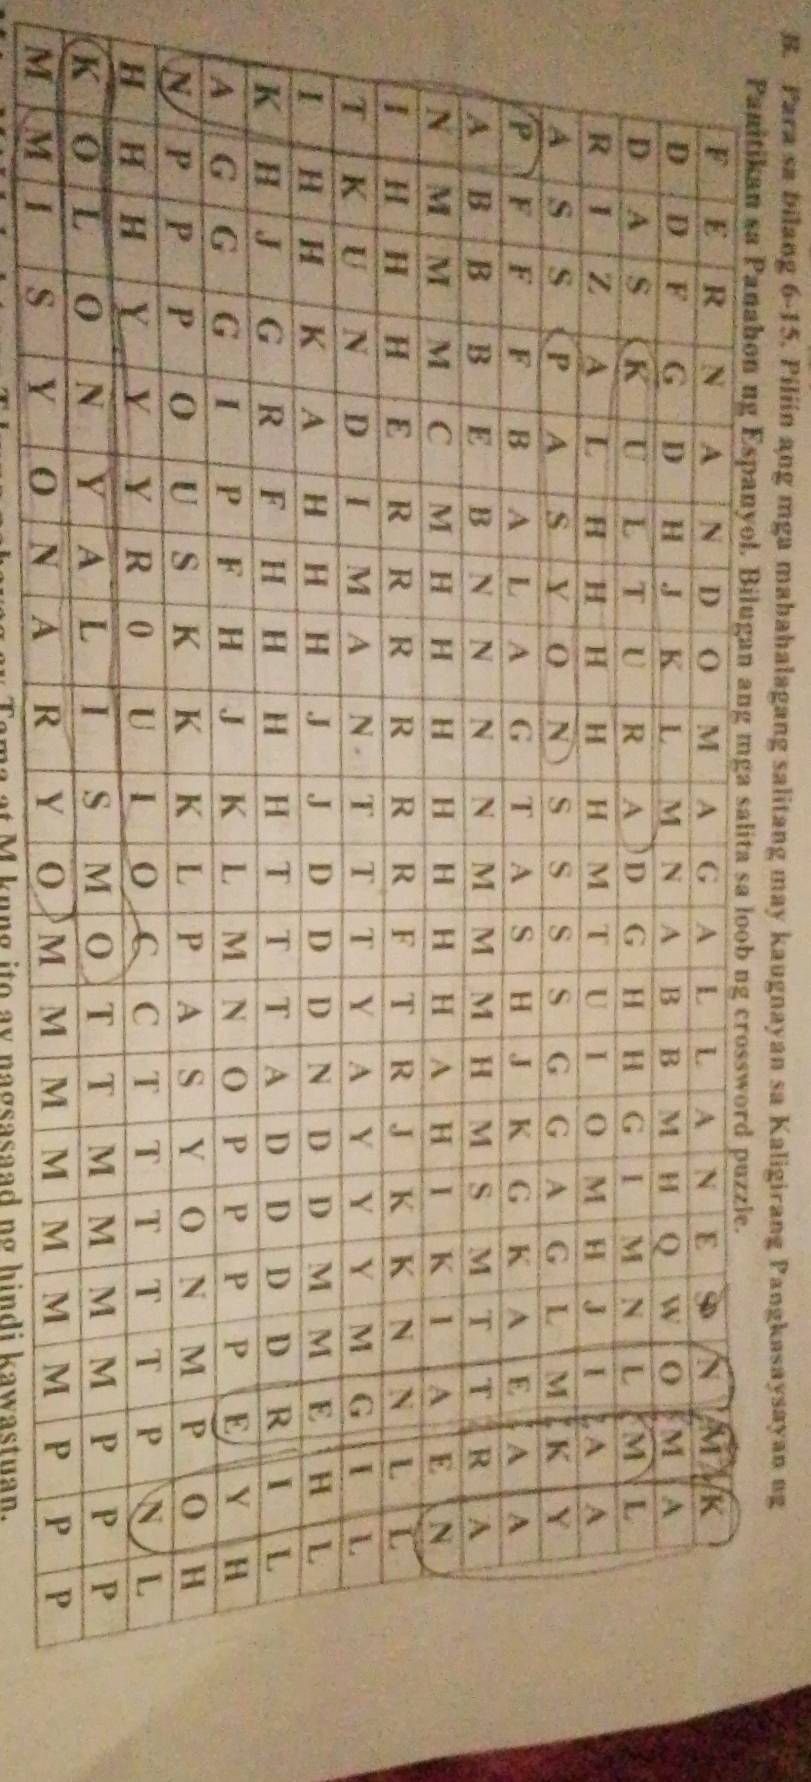 B. Para sa bilang 6-15. Piliin ang mga mahahalagang salitang may kaugnayan sa Kaligirang Pangkasaysayan ng
Panitikan sa Panahon ng Espanyol. Bilugan ang mga salita sa loob ng crossword puzzle.
F E R N A N D O M A G A L L A N E S N M K
D D F G D H J K L M N A B B M H Q W O M A
D A S K U L T U R A D G H H G I M N L M L
R I Z A L H H H H H M T U I O M H J I A A
A S S P A S Y O N S S S S G G A G L M K Y
P F F F B A L A G T A S H J K G K A E A A
A B B B E B N N N N M M M H M S M T T R A
N M M M C M H H H H H H H A H I K I A E N
I H H H E R R R R R R F T R J K K N N L L
T K U N D I M A N T T T Y A Y Y Y M G I L
I H H K A H H H J J D D D N D D M M E H L
K H J G R F H H H H T T T A D D D D R I L
A G G G I P F H J K L M N O P P P P E Y H
N P P P O U S K K K L P A S Y O N M P O H
H H H Y Y Y R 0 U I O C C T T T T T P N L
K O L O N Y A L I S M O T T M M M M P P P
M M I S Y O N A R Y O M M M M M M M P P P